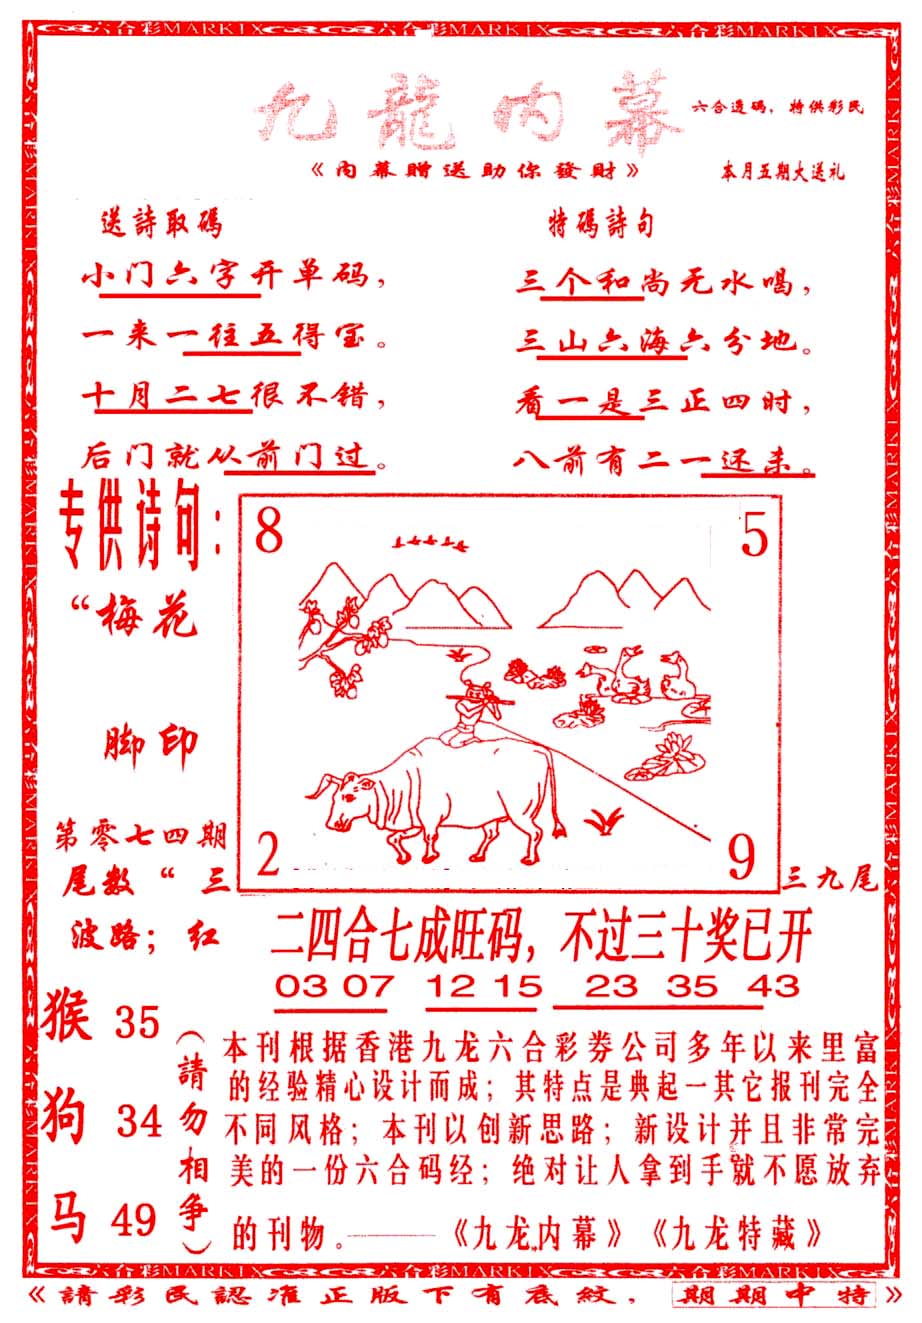 六合彩MARKIX 六合彩MARKIX 六合彩MARKIX
九龍内幕
六合透碼，特供彩民
《内幕贈送助你發財》
本月五期大送礼
送詩取碼
小门六字开单码，
一来一往五得宝。
十月二七很不错，
后门就从前门过。
特碼詩句
三个和尚无水喝，
三山六海六分地。
看一是三正四时，
八前有二一还来。
专供诗句：
“梅花
脚印
第零七四期
尾数“三
波路；红
8
5
2
9
三九尾
二四合七成旺码，不过三十奖已开
03 07 12 15 23 35 43
猴 35
狗 34
马 49
（請勿相争）
本刊根据香港九龙六合彩券公司多年以来里富
的经验精心设计而成；其特点是典起一其它报刊完全
不同风格；本刊以创新思路；新设计并且非常完
美的一份六合码经；绝对让人拿到手就不愿放弃
的刊物。——《九龙内幕》《九龙特藏》
六合彩MARKIX 六合彩MARKIX 六合彩MARKIX
《請彩民認准正版下有底紋，期期中特》